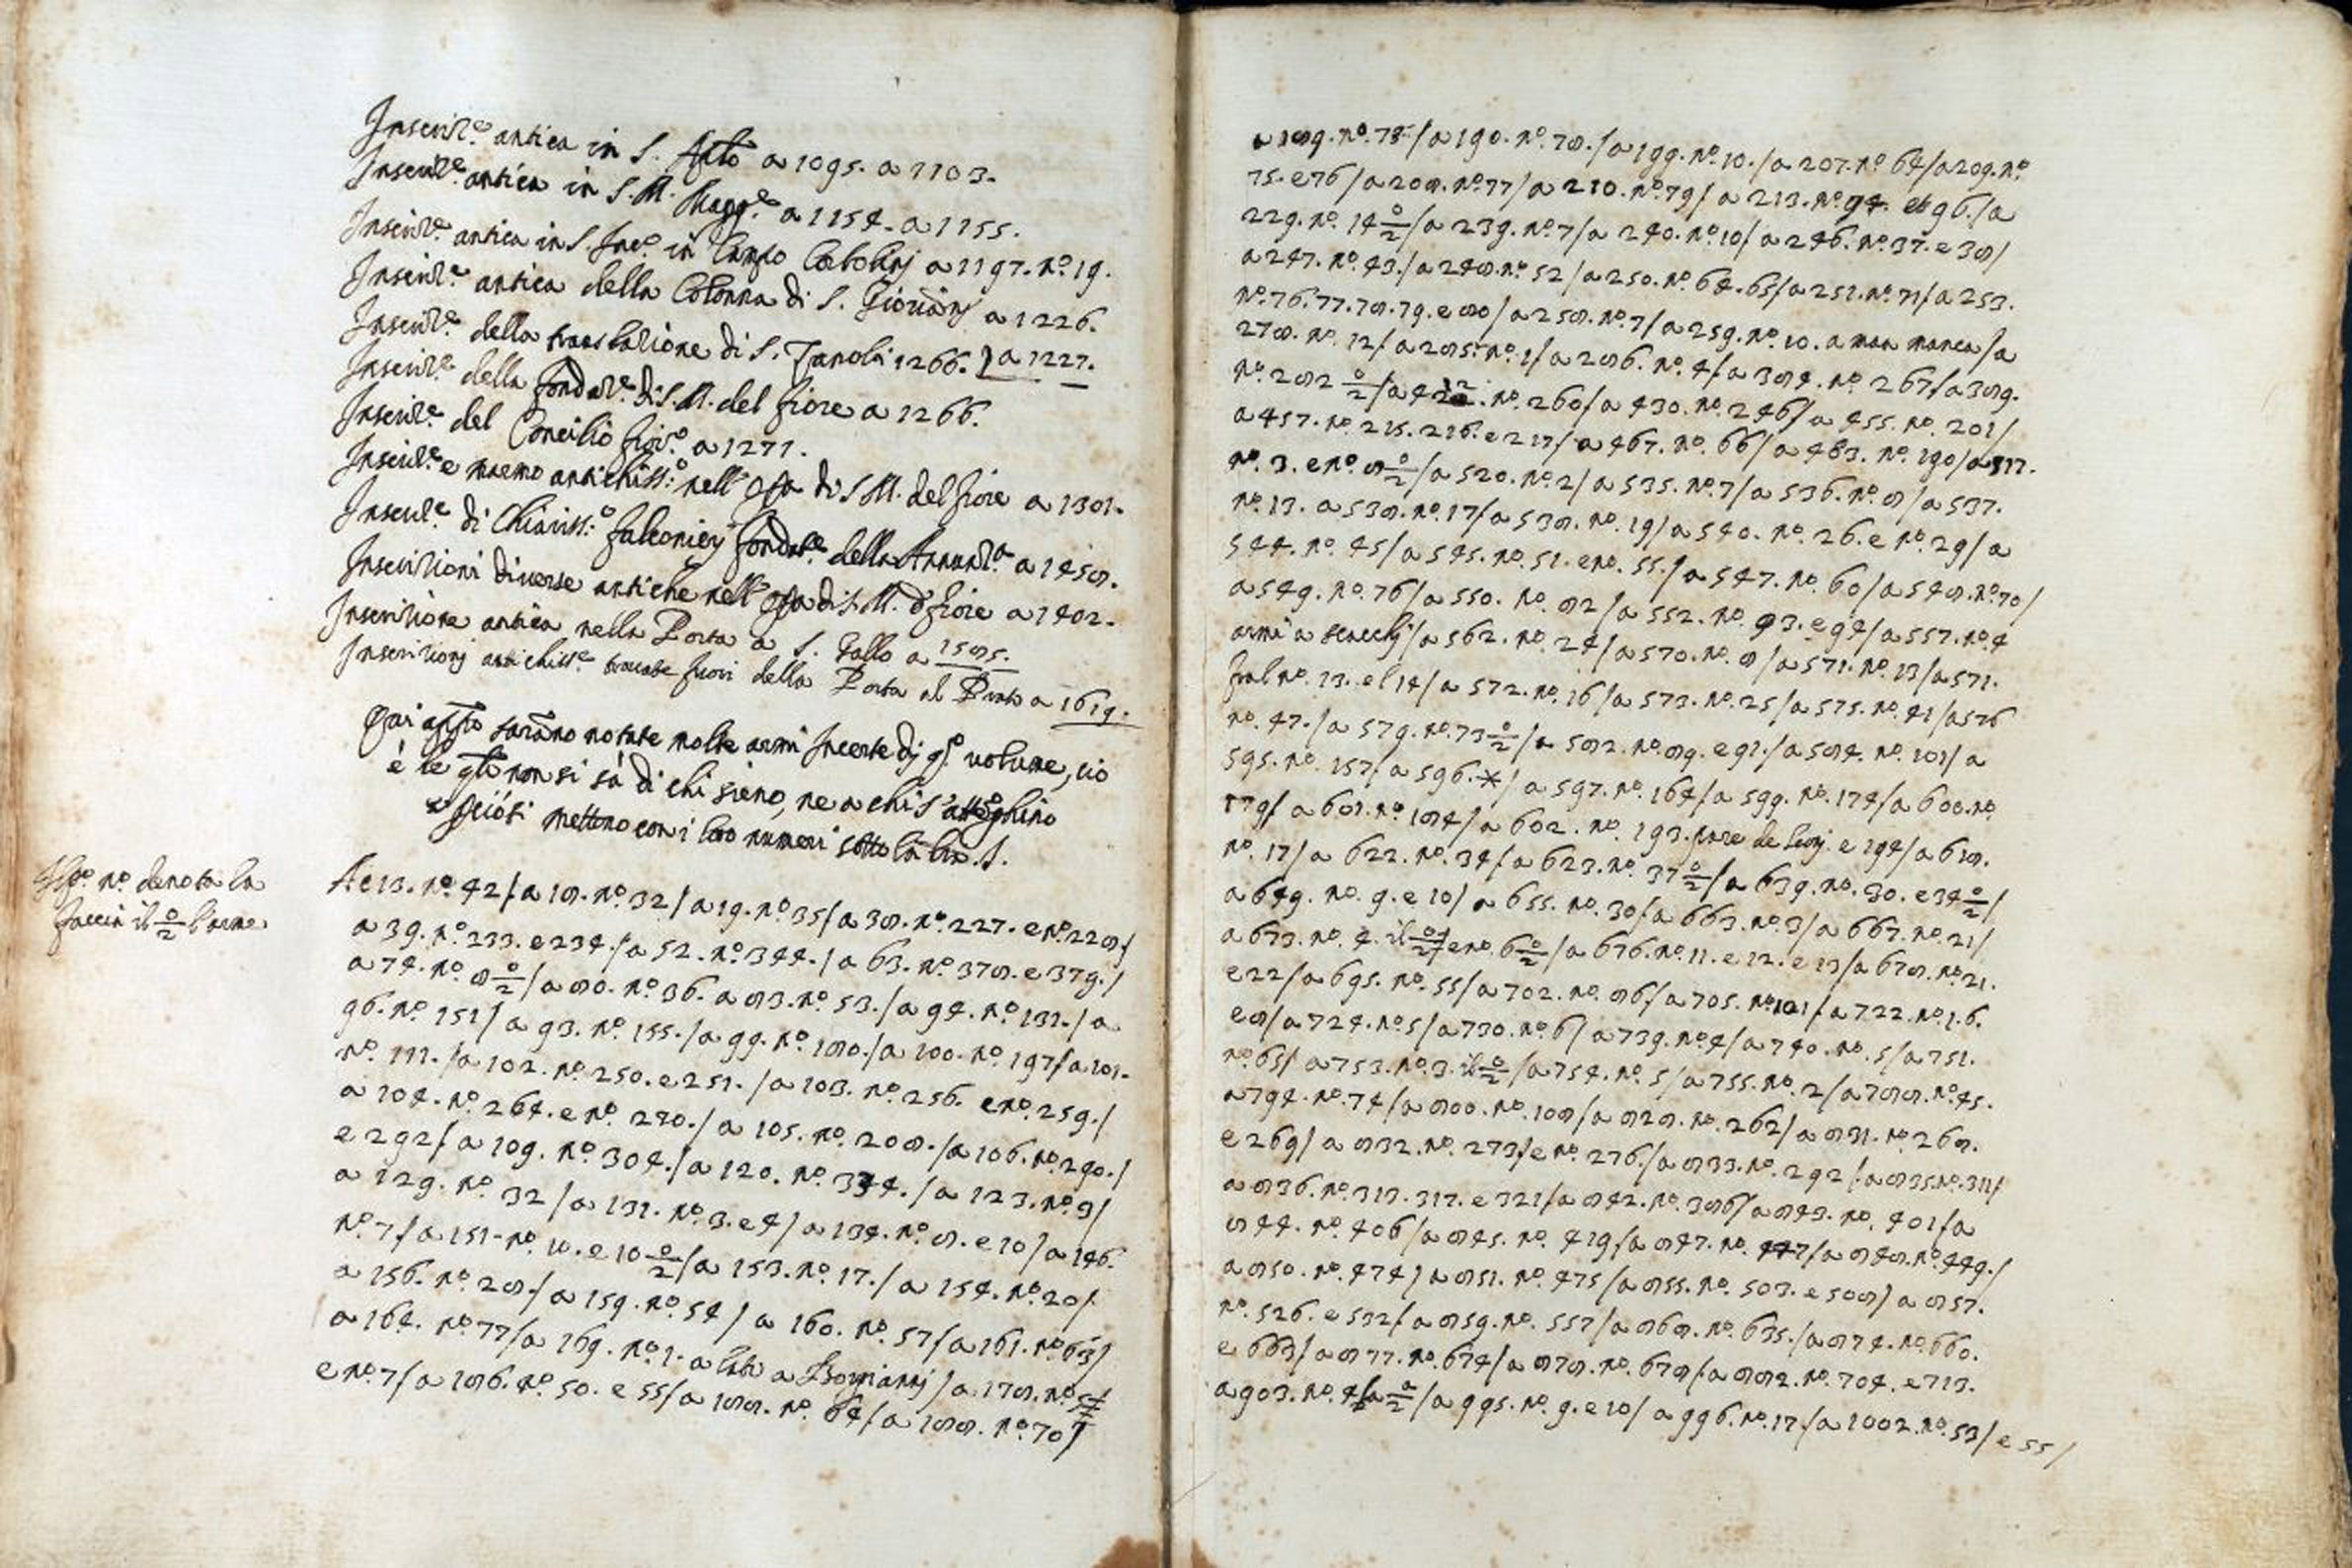 Inscriz.e antica in S. Appo a 1095. a 1103.
Inscriz.e antica in S. M. Magg.e a 1154. a 1155.
Inscriz.e antica in S. Jac.o in Campo Corbolinj a 1197. n.o 19.
Inscriz.e antica della Colonna di S. Giovanj a 1226.
Inscriz.e della traslazione di S. Zanobi 1266. } a 1227.
Inscriz.e della fondaz.e di S. M. del fiore a 1266.
Inscriz.e del Concilio fior.o a 1271.
Inscriz.e e marmo antichiss.o nell' Opa di S M. del fiore a 1301.
Inscriz.e di Chiariss.o falconierj fondat.e della Annunz.a a 1458.
Inscrizioni diverse antiche nell' Opa di S. M. d fiore a 1402.
Inscrizione antica nella Porta a S. Gallo a 1585.
Inscrizionj antichiss.e trovate fuori della Porta al Prato a 1619.
Qui app.o saranno notate molte armi Incerte dj q.o volume, cio
è le q.li non si sà di chi sieno, ne a chi s'
si mettono con i loro numeri sotto la
n.o denota la
faccia il 0/2 l'arme
A c 13. n.o 42/ a 18. n.o 32/ a 19. n.o 35/ a 38. n.o 227. e n.o 228./
a 39. n.o 233. e 234./ a 52. n.o 344./ a 63. n.o 378. e 379./
a 74. n.o 8 0/2 / a 80. n.o 36. a 83. n.o 53./ a 94. n.o 131./ a
96. n.o 151/ a 93. n.o 155./ a 99. n.o 180./ a 100. n.o 197/ a 101.
n.o 111./ a 102. n.o 250. e 251./ a 103. n.o 256. e n.o 259./
a 104. n.o 264. e n.o 270./ a 105. n.o 208./ a 106. n.o 290./
e 292/ a 109. n.o 304./ a 120. n.o 334./ a 123. n.o 9/
a 129. n.o 32/ a 131. n.o 3. e 4/ a 134. n.o 8. e 10/ a 146.
n.o 7/ a 151. n.o 10. e 10 0/2 / a 153. n.o 17./ a 154. n.o 20/
a 156. n.o 28./ a 159. n.o 54/ a 160. n.o 57/ a 161. n.o 63/
a 164. n.o 77/ a 169. n.o 1. a lato a / a 178. n.o
e n.o 7/ a 186. n.o 50. e 55/ a 188. n.o 64/ a 188. n.o 70/
a 189. n.o 78/ a 190. n.o 78./ a 199. n.o 10./ a 207. n.o 64/ a 209. n.o
75. e 76/ a 208. n.o 77/ a 210. n.o 79/ a 213. n.o 94. et 96./ a
229. n.o 14 0/2 / a 239. n.o 7/ a 240. n.o 10/ a 246. n.o 37. e 38/
a 247. n.o 43./ a 248. n.o 52/ a 250. n.o 64. 65/ a 251. n.o 71/ a 253.
n.o 76. 77. 78. 79. e 80/ a 258. n.o 7/ a 259. n.o 10. a man manca/ a
278. n.o 12/ a 285. n.o 1/ a 286. n.o 4/ a 384. n.o 267/ a 389.
n.o 282 0/2 / a 422. n.o 260/ a 430. n.o 246/ a 455. n.o 201/
a 457. n.o 215. 216. e 217/ a 467. n.o 66/ a 483. n.o 190/ a 517.
n.o 3. e n.o 8 0/2 / a 520. n.o 2/ a 535. n.o 7/ a 536. n.o 8/ a 537.
n.o 13. a 538. n.o 17/ a 538. n.o 19/ a 540. n.o 26. e n.o 29/ a
544. n.o 45/ a 545. n.o 51. e n.o 55./ a 547. n.o 60/ a 548. n.o 70/
a 549. n.o 76/ a 550. n.o 82/ a 552. n.o 93. e 94/ a 557. n.o 4
armi a scacchj/ a 562. n.o 24/ a 570. n.o 8/ a 571. n.o 13/ a 571.
fral n.o 13. el 14/ a 572. n.o 16/ a 573. n.o 25/ a 575. n.o 41/ a 576
n.o 47./ a 579. n.o 73 0/2 / a 582. n.o 89. e 91./ a 584. n.o 101/ a
595. n.o 157/ a 596. */ a 597. n.o 164/ a 599. n.o 174/ a 600. n.o
179/ a 601. n.o 184/ a 602. n.o 193. pare de e 194/ a 618.
n.o 17/ a 622. n.o 34/ a 623. n.o 37 0/2 / a 639. n.o 30. e 34 0/2 /
a 649. n.o 9. e 10/ a 655. n.o 30/ a 663. n.o 3/ a 667. n.o 21/
a 673. n.o 4. il 0/2 / e n.o 6 0/2 / a 676. n.o 11. e 12. e 13/ a 678. n.o 21.
e 22/ a 695. n.o 55/ a 702. n.o 86/ a 705. n.o 101/ a 722. n.o 1. 6.
e 8/ a 724. n.o 5/ a 730. n.o 6/ a 739. n.o 4/ a 740. n.o 5/ a 751.
n.o 65/ a 753. n.o 3. il 0/2 / a 754. n.o 5/ a 755. n.o 2/ a 788. n.o 45.
a 794. n.o 74/ a 800. n.o 108/ a 828. n.o 262/ a 831. n.o 268.
e 269/ a 832. n.o 273/ e n.o 276./ a 833. n.o 292/ a 835. n.o 311/
a 836. n.o 313. 317. e 321/ a 842. n.o 386/ a 843. n.o 401/ a
844. n.o 406/ a 845. n.o 419/ a 847. n.o 447/ a 848. n.o 449./
a 850. n.o 474/ a 851. n.o 475/ a 855. n.o 503. e 508/ a 857.
n.o 526. e 532/ a 859. n.o 557/ a 868. n.o 635./ a 874. n.o 660.
e 663/ a 877. n.o 674/ a 878. n.o 678/ a 882. n.o 704. e 713.
a 903. n.o 4/ 0/2 / a 995. n.o 9. e 10/ a 996. n.o 17/ a 1002. n.o 53/ e 55/